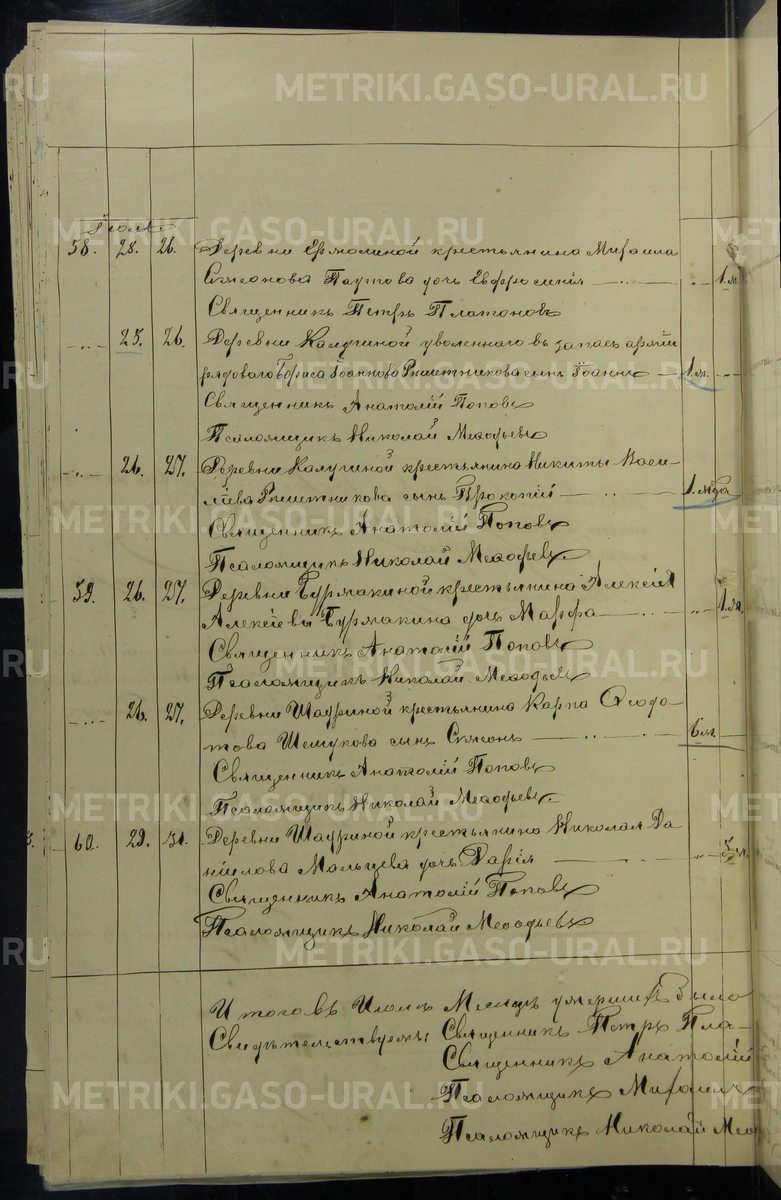 Июля
58. 28. 26. Деревни Ермолиной крестьянина Михаила
Симеонова Паутова дочь Евфросинія " 1 м.
Священникъ Петръ Платоновъ
25. 26. Деревни Калугиной уволеннаго въ запасъ арміи
рядового Бориса Іоаннова Решетникова сынъ Іоаннъ 1 м.
Священникъ Анатолій Поповъ
Псаломщикъ Николай Меѳодьевъ
26. 27. Деревни Калугиной крестьянина Никиты Васи-
ліева Решетникова сынъ Прокопій 1. м
Священникъ Анатолій Поповъ
Псаломщикъ Николай Меѳодьевъ
59. 26. 27. Деревни Бурмакиной крестьянина Алексія
Алексіева Бурмакина дочь Марфа " 1 м.
Священникъ Анатолій Поповъ
Псаломщикъ Николай Меѳодьевъ
26. 27. Деревни Шадриной крестьянина Карпа Ѳеодо-
това Шешукова сынъ Симеонъ 6 м.
Священникъ Анатолій Поповъ
Псаломщикъ Николай Меѳодьевъ
60. 29. 31. Деревни Шадриной крестьянина Николая Да-
ніилова Мальцева дочь Дарія " 5 м.
Священникъ Анатолій Поповъ
Псаломщикъ Николай Меѳодьевъ
Итого въ Июлѣ Месяцѣ умершихъ было
Свидѣтельствуемъ: Священникъ Петръ Пла-
Священникъ Анатолій
Псаломщикъ Михаилъ
Псаломщикъ Николай Меѳод
METRIKI.GASO-URAL.RU